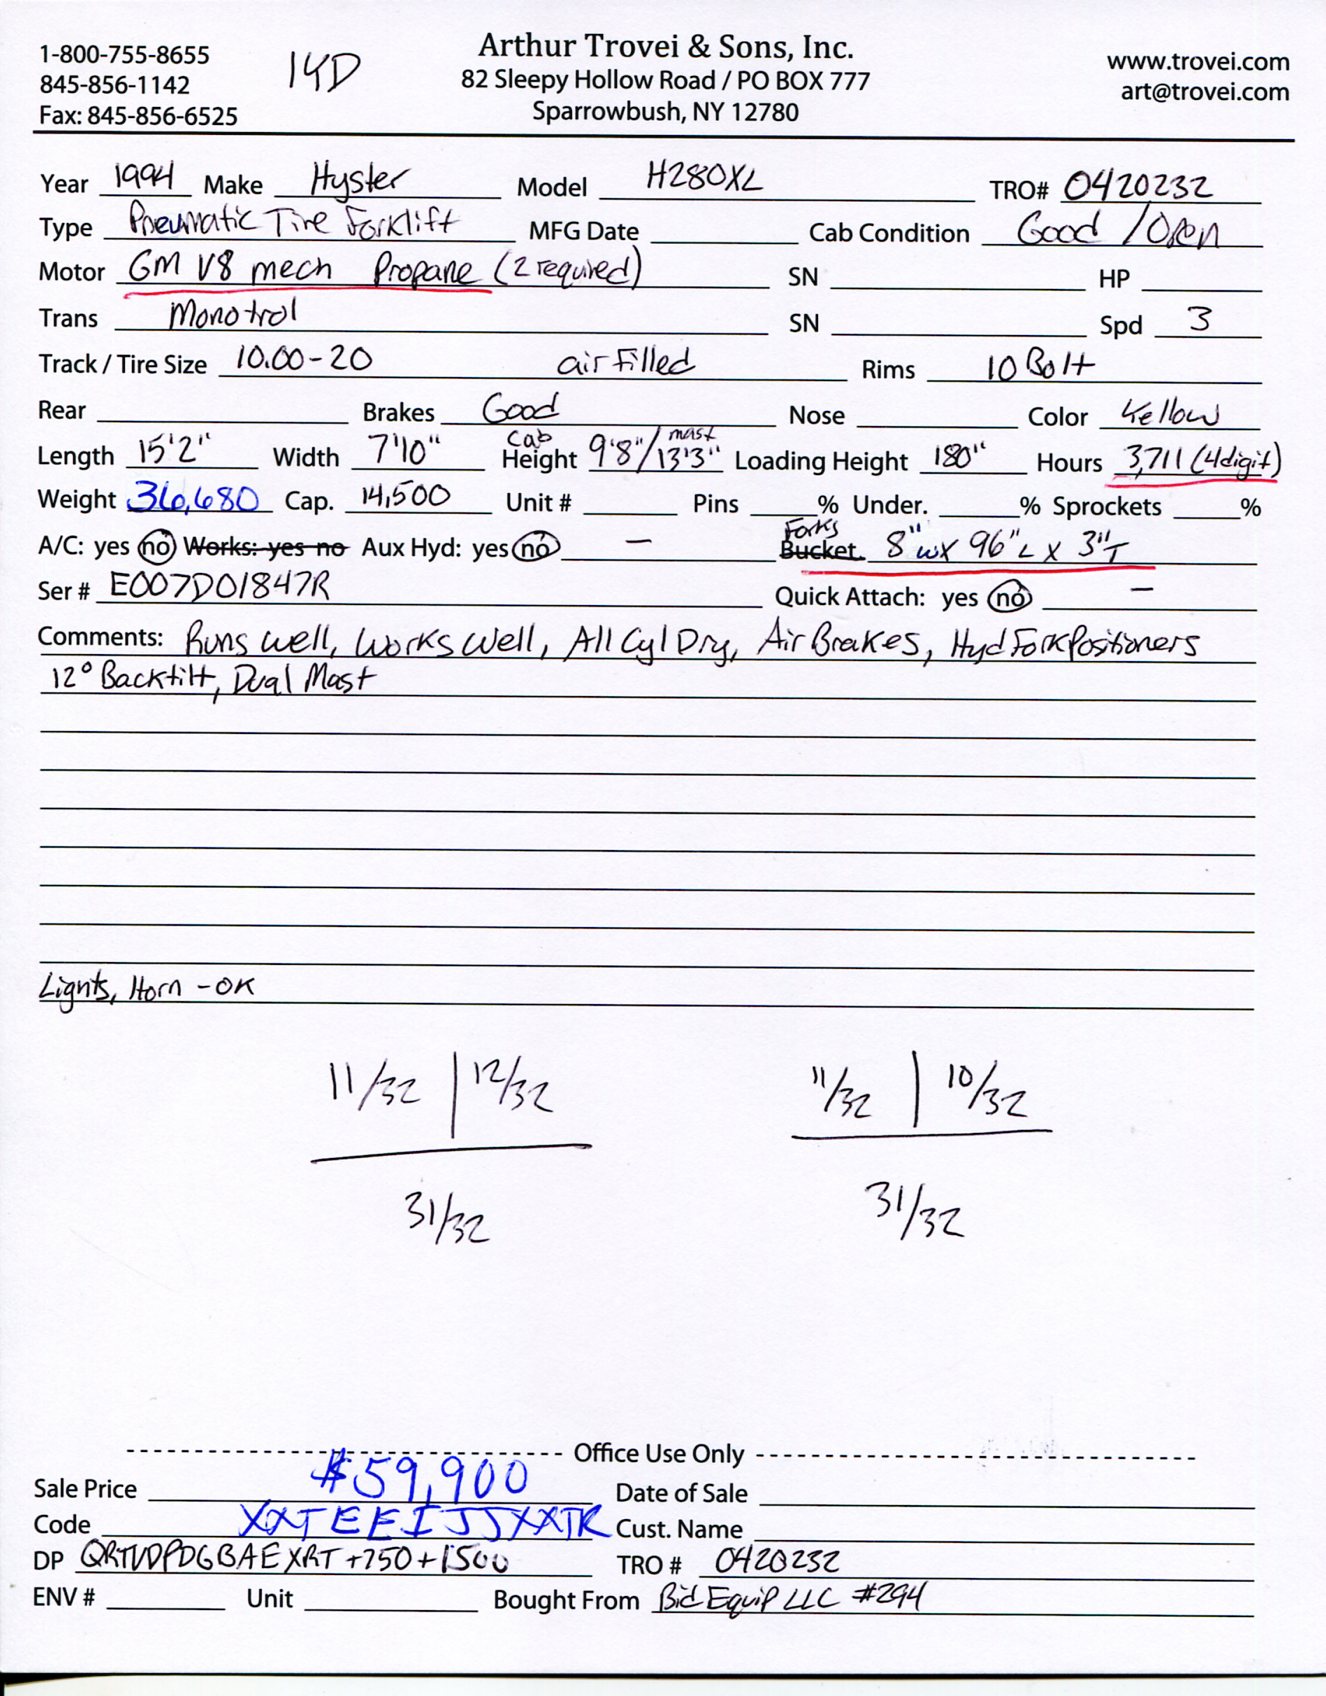 1-800-755-8655
845-856-1142
Fax: 845-856-6525
14D
Arthur Trovei & Sons, Inc.
82 Sleepy Hollow Road / PO BOX 777
Sparrowbush, NY 12780
www.trovei.com
art@trovei.com
Year 1994 Make Hyster Model H280XL TRO# 0420232
Type Pneumatic Tire Forklift MFG Date Cab Condition Good / Open
Motor GM V8 mech Propane (2 required) SN HP
Trans Monotrol SN Spd 3
Track / Tire Size 10.00-20 air filled Rims 10 Bolt
Rear Brakes Good Nose Color Yellow
Length 15'2" Width 7'10" Cab Height 9'8" / mast 13'3" Loading Height 180" Hours 3,711 (4digit)
Weight 36,680 Cap. 14,500 Unit # Pins % Under. % Sprockets %
A/C: yes no Works: yes no Aux Hyd: yes no — Forks Bucket 8"w x 96"L x 3"T
Ser # E007D01847R Quick Attach: yes no —
Comments: Runs well, Works Well, All Cyl Dry, Air Brakes, Hyd Fork Positioners
12° Backtilt, Dual Mast
Lights, Horn - OK
11/32 | 12/32 11/32 | 10/32
31/32 31/32
Office Use Only
Sale Price $59,900 Date of Sale
Code XXTEEIJJXXTR Cust. Name
DP QRTVDPDGBAEXRT +750 + 1500 TRO # 0420232
ENV # Unit Bought From Bid Equip LLC #294